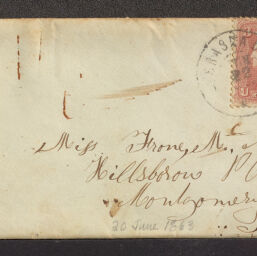 Miss Irone, M.
Hillsborow P
Montgomery
20 June 1863